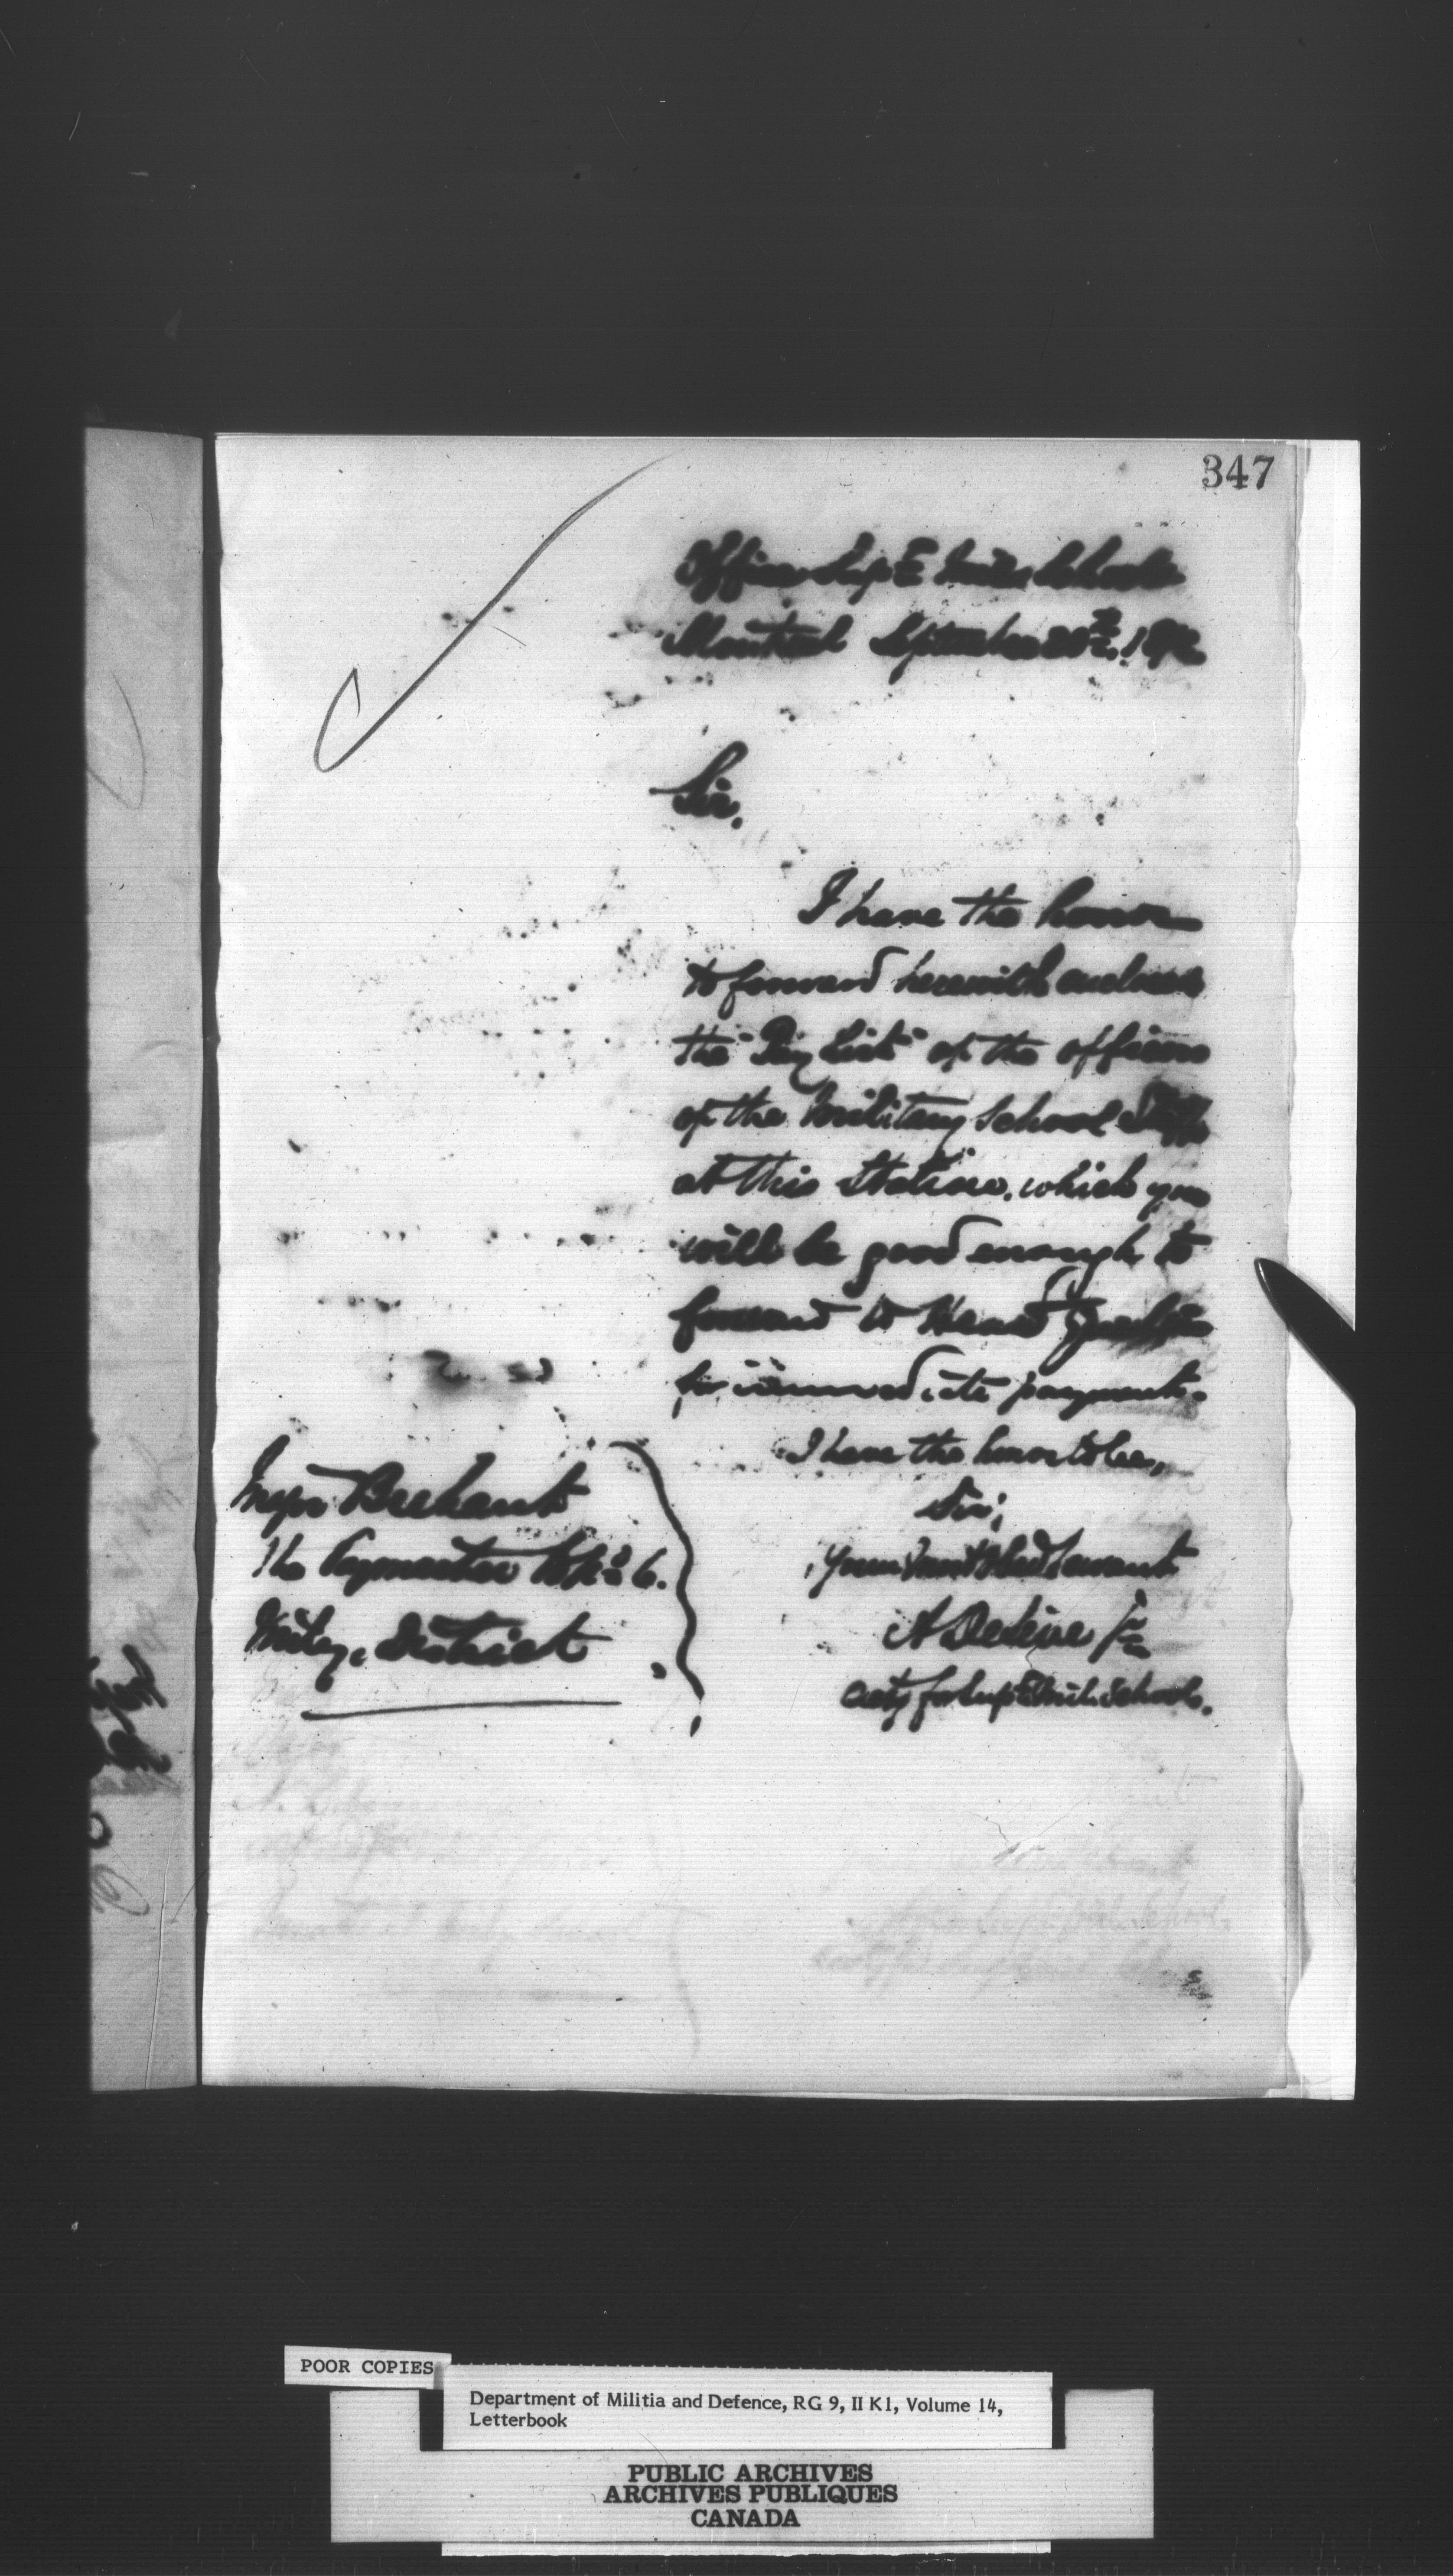 347
Office Sup E Mil. Schools
Montreal September 20th, 1872
Sir,
I have the honor
to forward herewith enclosed
the "Pay List" of the officers
of the Military School Staff
at this Station. which you
will be good enough to
forward to Head Quarters
for immediate payment.
I have the honor to be,
Sir,
Your Servant
A
for Sup E Mil. Schools.
Major Brehaut
Paymaster No 6.
Mily. District
POOR COPIES
Department of Militia and Defence, RG 9, II K1, Volume 14,
Letterbook
PUBLIC ARCHIVES
ARCHIVES PUBLIQUES
CANADA